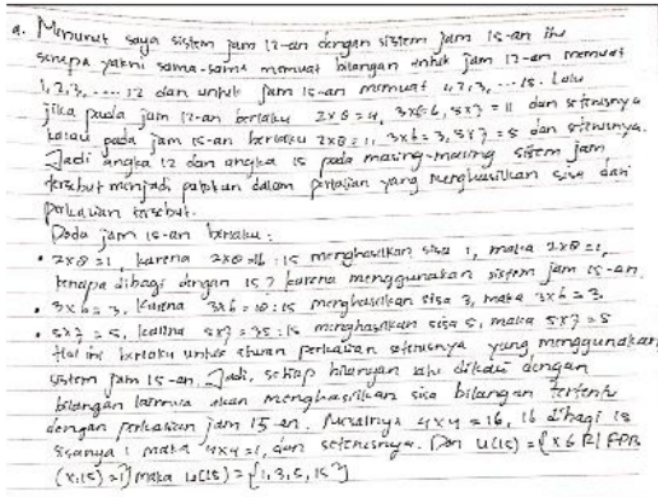 a. Menurut saya sistem jam 12-an dengan sistem jam 15-an itu
serupa yakni sama-sama memuat bilangan untuk jam 12-an memuat
1, 2, 3, .... 12 dan untuk jam 15-an memuat 1, 2, 3, ... 15. Lalu
jika pada jam 12-an berlaku 2x8=4, 3x6=6, 5x7=11 dan seterusnya
kalau pada jam 15-an berlaku 2x8=1, 3x6=3, 5x7=5 dan seterusnya.
Jadi angka 12 dan angka 15 pada masing-masing sistem jam
tersebut menjadi patokan dalam perkalian yang menghasilkan sisa dari
perkalian tersebut.
Pada jam 15-an berlaku :
• 2x8=1, karena 2x8=16 : 15 menghasilkan sisa 1, maka 2x8=1,
kenapa dibagi dengan 15? karena menggunakan sistem jam 15-an.
• 3x6=3, Karena 3x6=18:15 menghasilkan sisa 3, maka 3x6=3.
• 5x7=5, karena 5x7=35:15 menghasilkan sisa 5, maka 5x7=5
Hal ini berlaku untuk perkalian seterusnya yang menggunakan
sistem jam 15-an. Jadi, setiap bilangan dikali dengan
bilangan lainnya akan menghasilkan sisa bilangan tertentu
dengan perkalian jam 15-an. Misalnya 4x4=16, 16 dibagi 15
sisanya 1 maka 4x4=1, dan seterusnya. Dan U(15)={x 6 R| FPB
(x,15)=1} maka U(15)={1,3,5,15}